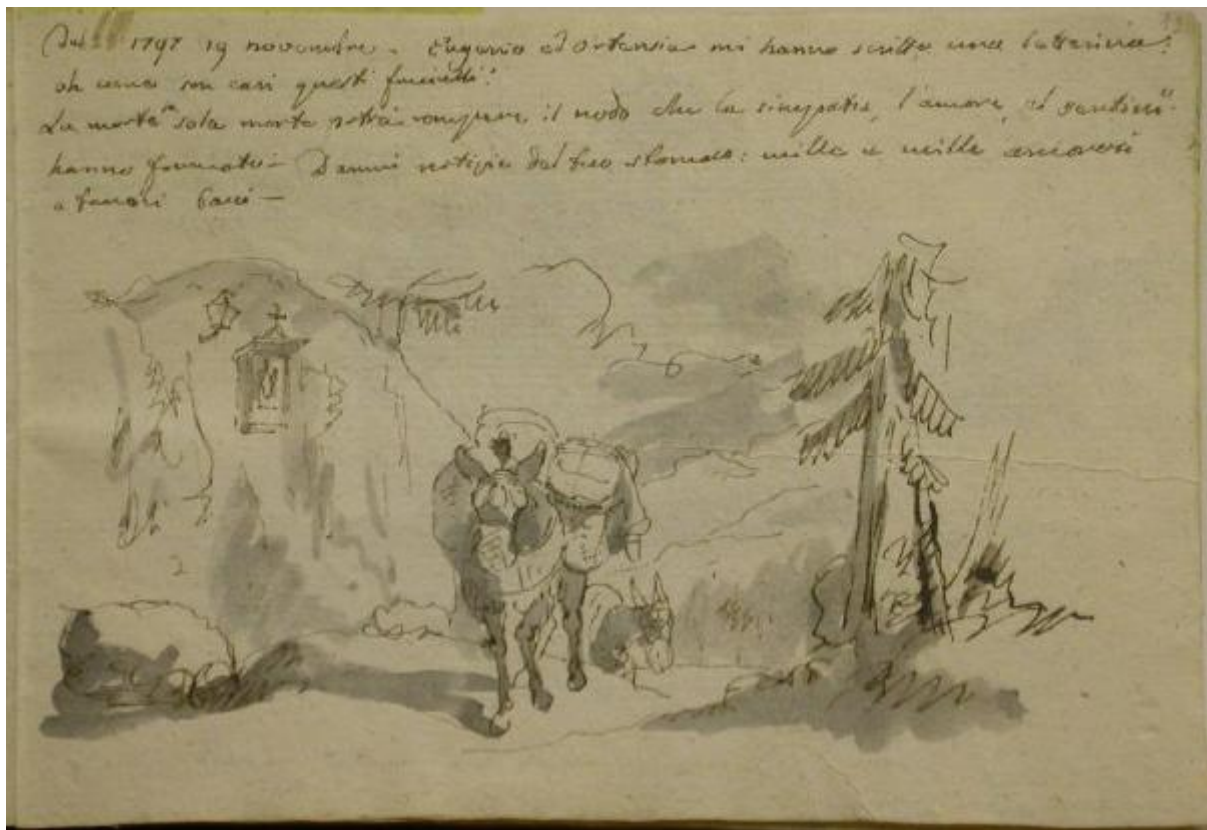 1797 19 novembre. Eugenio ed Ortensia mi hanno scritto una letterina:
oh come son cari questi
La morte la sola morte potrà rompere il nodo che la simpatia, l'amore, il sentim.
hanno formato - Dammi notizie del tuo stomaco: mille e mille amorosi
e teneri baci -